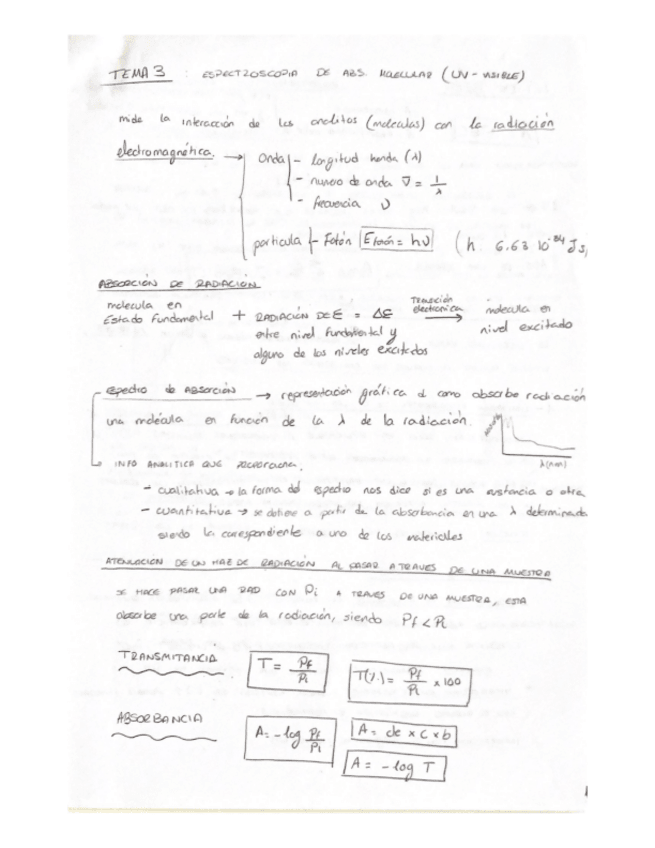 TEMA 3 : ESPECTROSCOPIA DE ABS. MOLECULAR (UV-VISIBLE)
mide la interacción de los analitos (moléculas) con la radiación
electromagnética. → Onda - longitud honda (λ)
- numero de onda ν̅ = 1/λ
- frecuencia ν
particula - Fotón E fotón = hν (h 6.63 10⁻³⁴ Js,
ABSORCION DE RADIACION
molecula en Estado Fundamental + RADIACIÓN DE E = ΔE entre nivel fundamental y alguno de los niveles excitados Transición electronica → molecula en nivel excitado
espectro de ABSORCIÓN → representación gráfica d como absorbe radiación
una molécula en función de la λ de la radiación.
λ(nm)
INFO ANALITICA QUE PROPORCIONA.
- cualitativa → la forma del espectro nos dice si es una sustancia o otra
- cuantitativa → se obtiene a partir de la absorbancia en una λ determinada
siendo la correspondiente a uno de los
ATENUACION DE UN HAZ DE RADIACIÓN AL PASAR A TRAVES DE UNA MUESTRA
SE HACE PASAR UNA RAD CON Pi A TRAVES DE UNA MUESTRA, ESTA
absorbe una parte de la radiación, siendo Pf < Pi
TRANSMITANCIA T = Pf/Pi T(%) = Pf/Pi x 100
ABSORBANCIA A = -log Pf/Pi A = cte x c x b
A = -log T